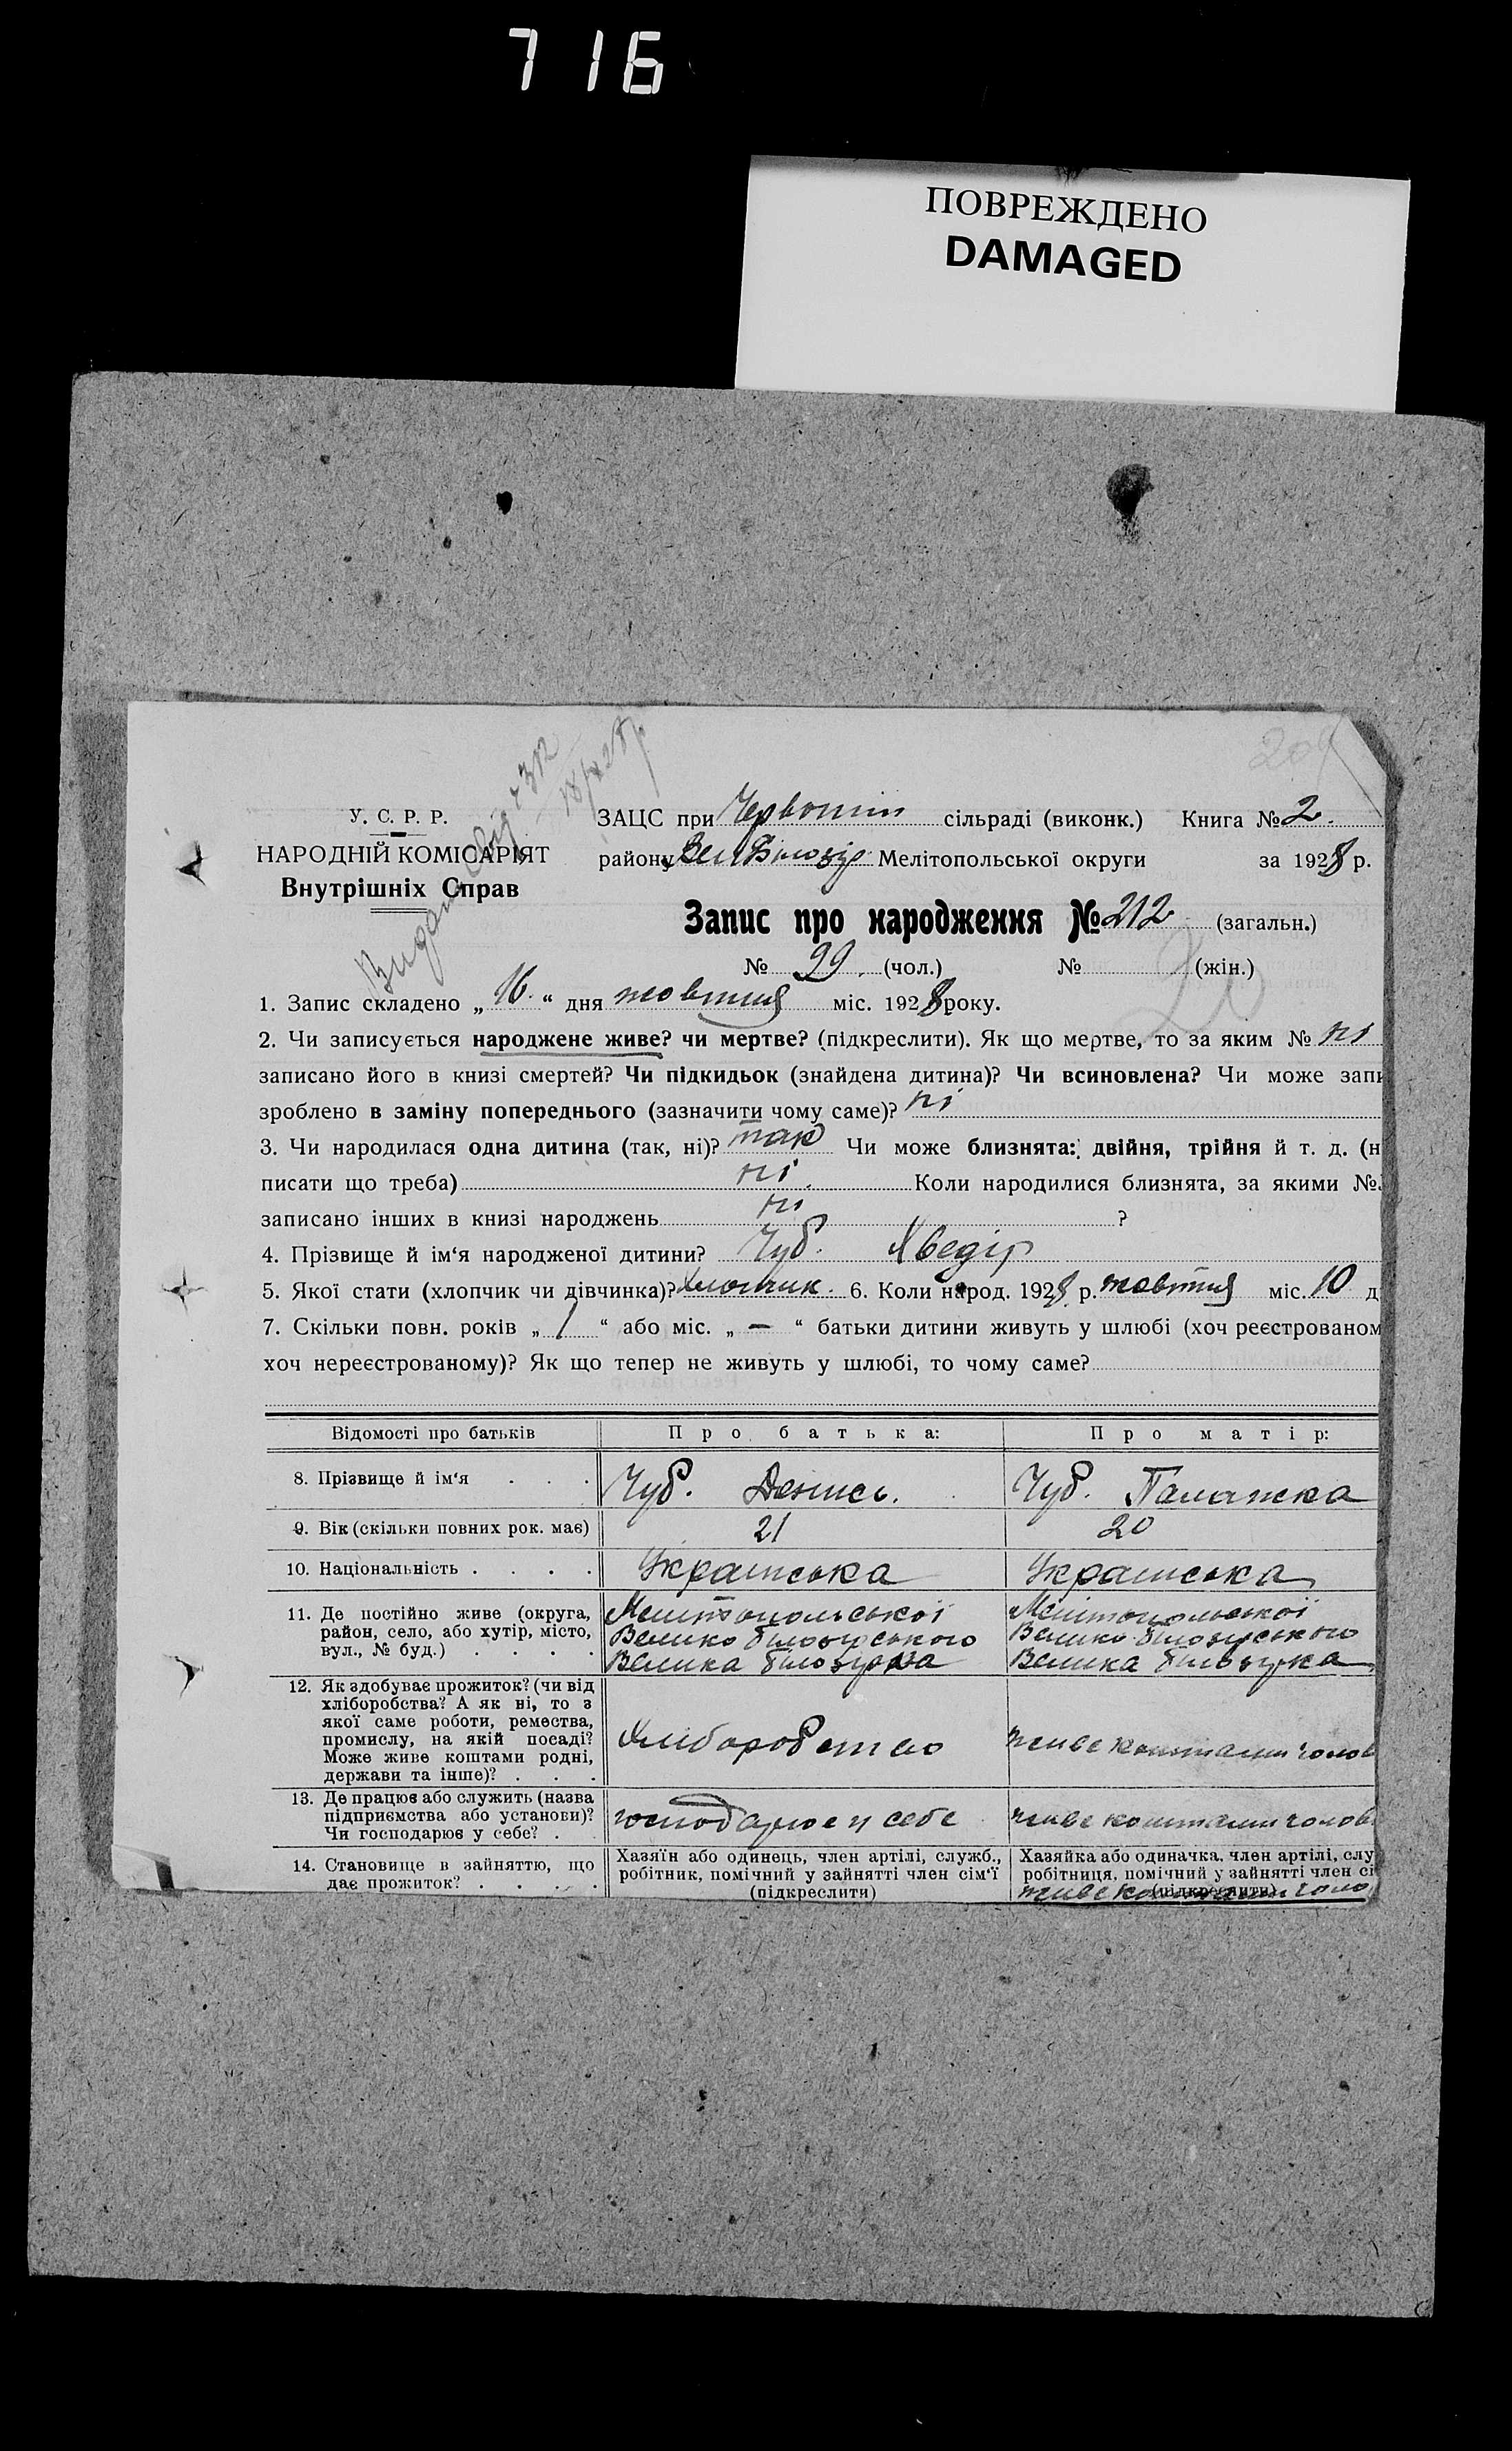 716
ПОВРЕЖДЕНО
DAMAGED
204
У. С. Р. Р.
НАРОДНІЙ КОМІСАРІЯТ
Внутрішніх Справ
ЗАЦС при Червонін сільраді (виконк.) Книга № 2.
району Вел Білозір Мелітопольської округи за 1928 р.
Запис про народження № 212 (загальн.)
№ 99. (чол.) № (жін.)
1. Запис складено „16.“ дня жовтня міс. 1928 року.
2. Чи записується народжене живе? чи мертве? (підкреслити). Як що мертве, то за яким № ні
записано його в книзі смертей? Чи підкидьок (знайдена дитина)? Чи всиновлена? Чи може запи
зроблено в заміну попереднього (зазначити чому саме)? ні
3. Чи народилася одна дитина (так, ні)? так Чи може близнята: двійня, трійня й т. д. (н
писати що треба) ні. Коли народилися близнята, за якими №
записано інших в книзі народжень ні ?
4. Прізвище й ім‘я народженої дитини? Чуб. Хведір
5. Якої стати (хлопчик чи дівчинка)? Хлопчик. 6. Коли народ. 1928 р. жовтня міс. 10 д
7. Скільки повн. років „1“ або міс. „—“ батьки дитини живуть у шлюбі (хоч реєстрованом
хоч нереєстрованому)? Як що тепер не живуть у шлюбі, то чому саме?
Відомості про батьків Про батька: Про матір:
8. Прізвище й ім‘я . . . Чуб. Денись. Чуб. Палажка
9. Вік (скільки повних рок. має) 21 20
10. Національність . . . . Українська Українська
11. Де постійно живе (округа, район, село, або хутір, місто, вул., № буд.) . . . .
Мелітопольської
Велико білозірського
Велика білозірка
Мелітопольської
Велико білозірського
Велика білозірка
12. Як здобуває прожиток? (чи від
хліборобства? А як ні, то з
якої саме роботи, ремества,
промислу, на якій посаді?
Може живе коштами родні,
держави та інше)? . . .
Хліборобство живе коштами голов
13. Де працює або служить (назва
підприємства або установи)?
Чи господарює у себе? . .
господарює у себе живе коштами голов
14. Становище в зайняттю, що
дає прожиток? . . . . .
Хазяїн або одинець, член артілі, служб.,
робітник, помічний у зайнятті член сім‘ї
(підкреслити)
Хазяйка або одиначка, член артілі, слу
робітниця, помічний у зайнятті член сі
(підкреслити)
живе коштами голо